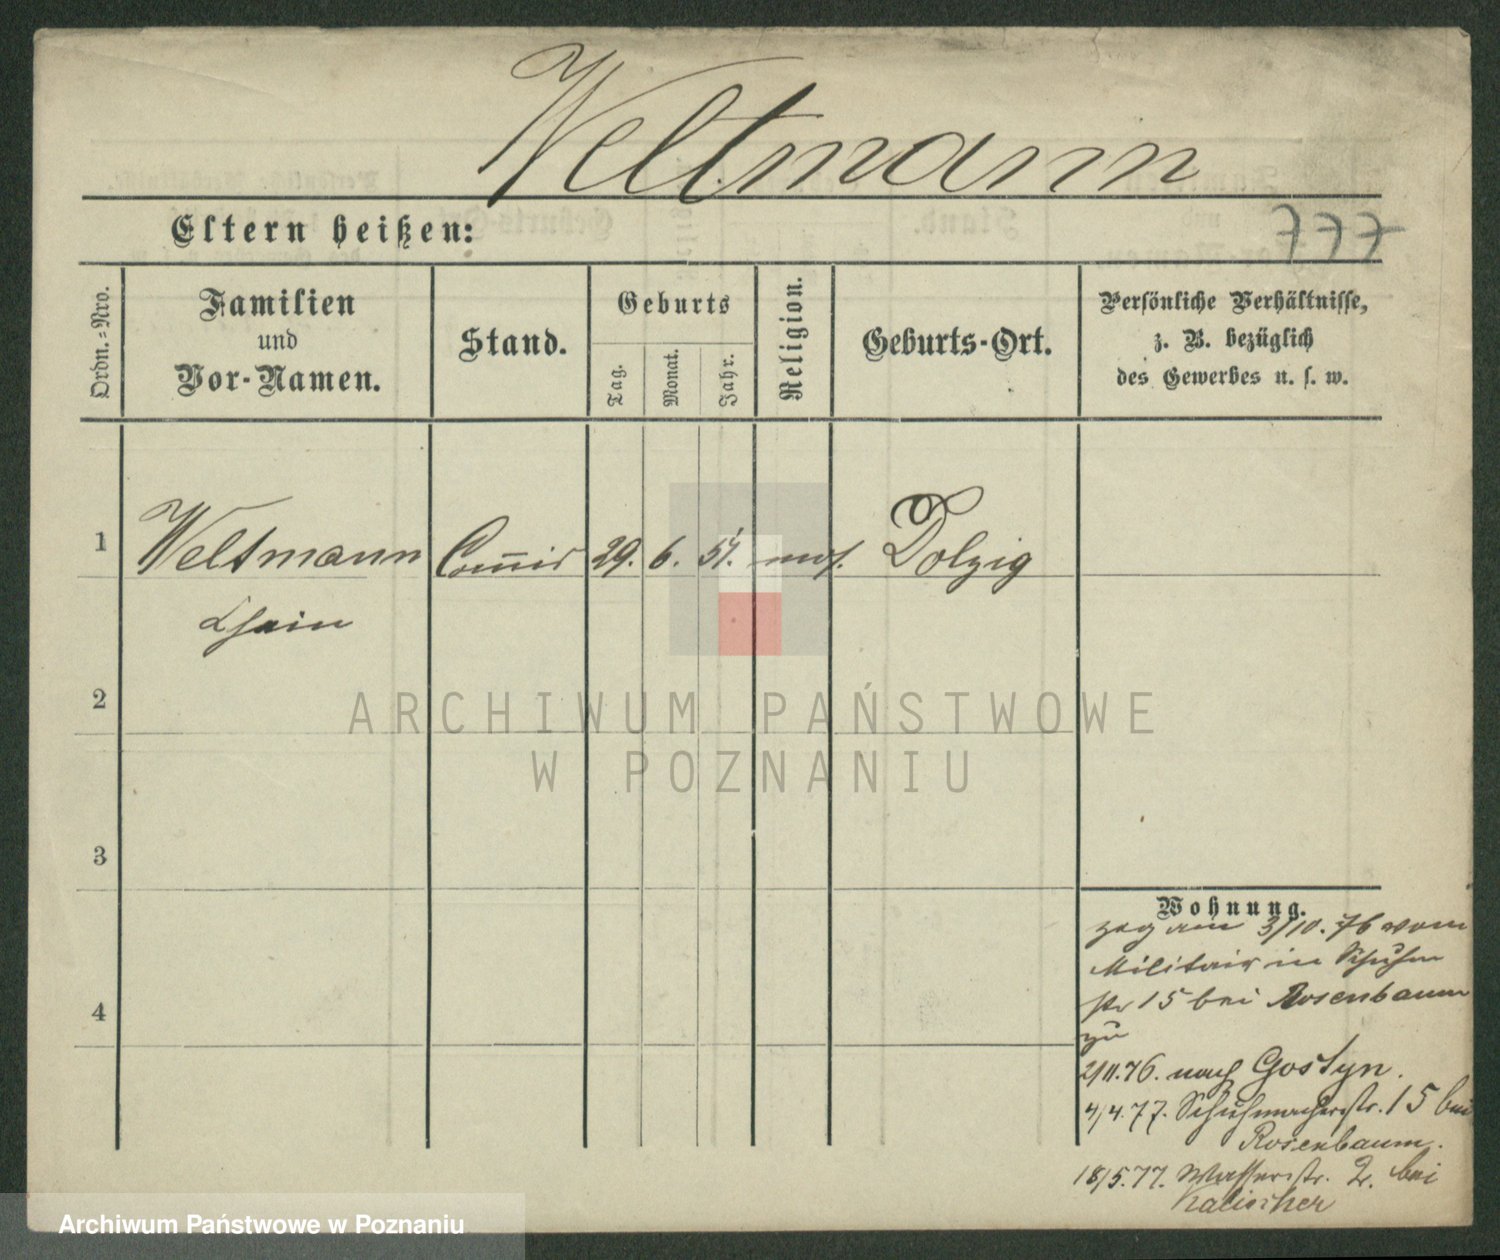 Weltmann
Eltern heißen:
777
Ordn.-Nro.
Familien
und
Vor-Namen.
Stand.
Geburts
Tag.
Monat.
Jahr.
Religion.
Geburts-Ort.
Persönliche Verhältnisse,
z. B. bezüglich
des Gewerbes u. s. w.
1
Weltmann
Commis
29.
6.
51.
mos.
Dolzig
Chaim
2
3
4
ARCHIWUM PAŃSTWOWE
W POZNANIU
Wohnung.
zog am 3/10. 76 vom
Militair in Schuhm
str 15 bei Rosenbaum
zu
2/11. 76. nach Gostyn.
4/4. 77. Schuhmacherstr. 15 bei
Rosenbaum.
18/5. 77. Wasserstr. 2. bei
Kalischer
Archiwum Państwowe w Poznaniu